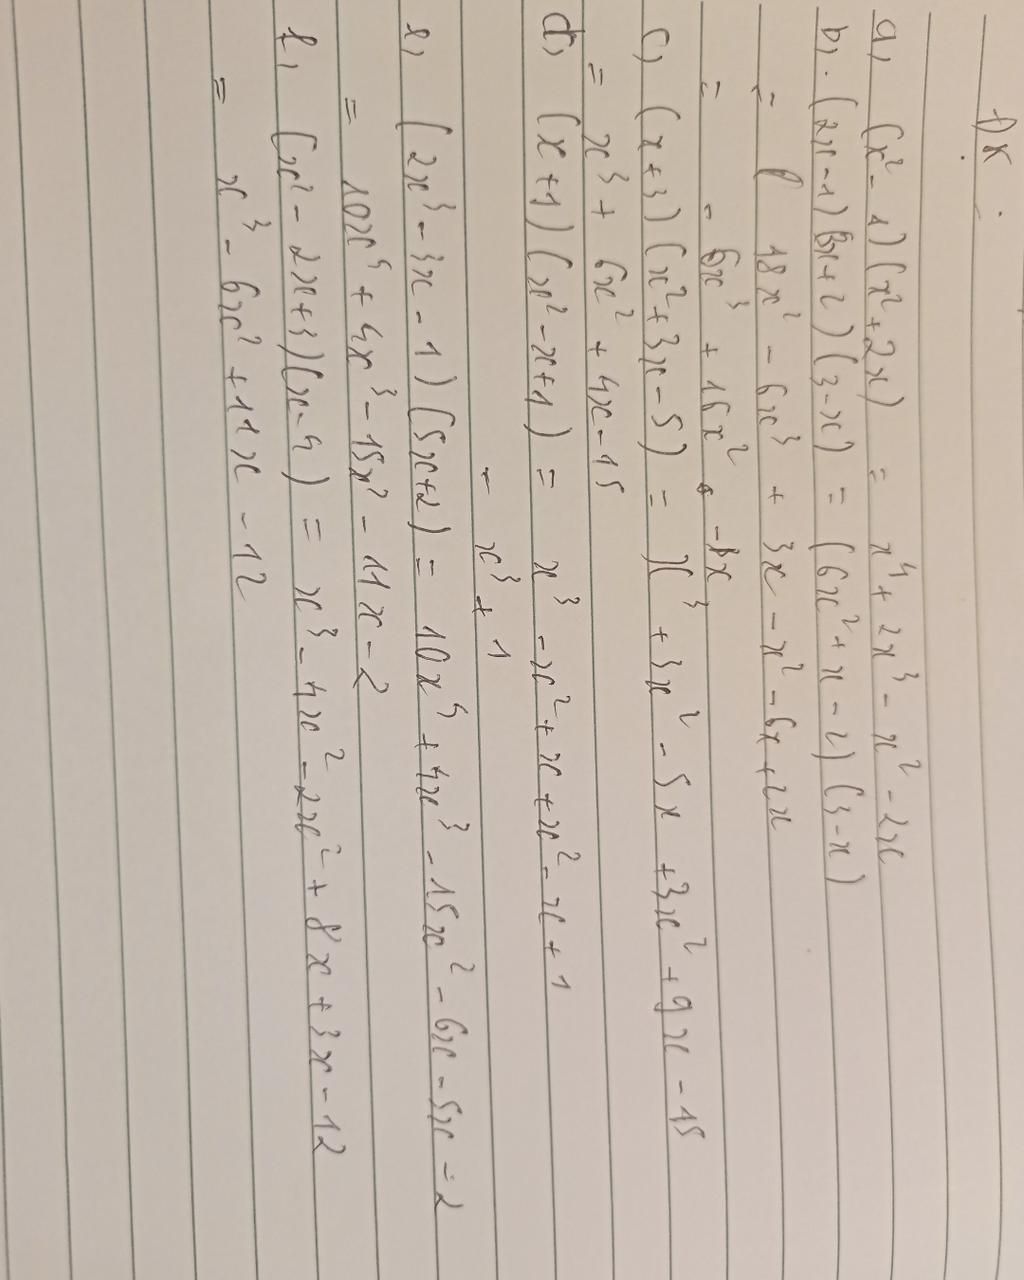 DK:
a, (x² - 1)(x² + 2x) = x⁴ + 2x³ - x² - 2x
b, (2x - 1)(3x + 2)(3 - x) = (6x² + x - 2)(3 - x)
= 18x² - 6x³ + 3x - x² - 6x + 2x
= - 6x³ + 16x² - x
c, (x + 3)(x² + 3x - 5) = x³ + 3x² - 5x + 3x² + 9x - 15
= x³ + 6x² + 4x - 15
d, (x + 1)(x² - x + 1) = x³ - x² + x + x² - x + 1
= x³ + 1
e, (2x³ - 3x - 1)(5x + 2) = 10x⁴ + 4x³ - 15x² - 6x - 5x - 2
= 10x⁴ + 4x³ - 15x² - 11x - 2
f, (x² - 2x + 3)(x - 4) = x³ - 4x² - 2x² + 8x + 3x - 12
= x³ - 6x² + 11x - 12